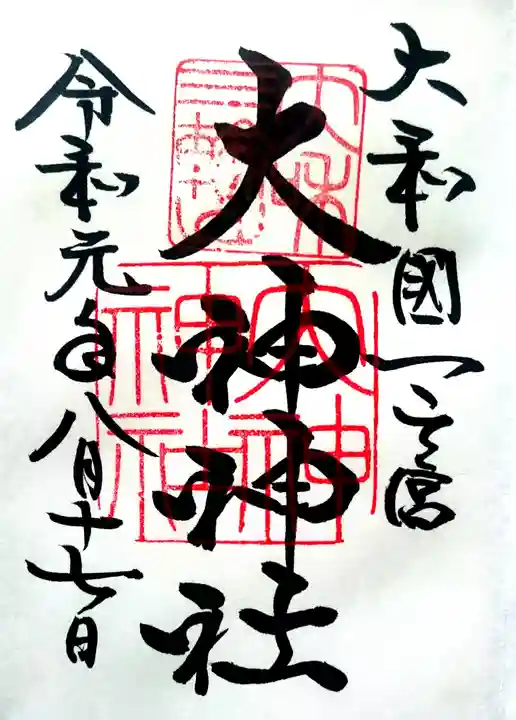 大和國一之宮
大神神社
令和元年八月十七日
大神神社